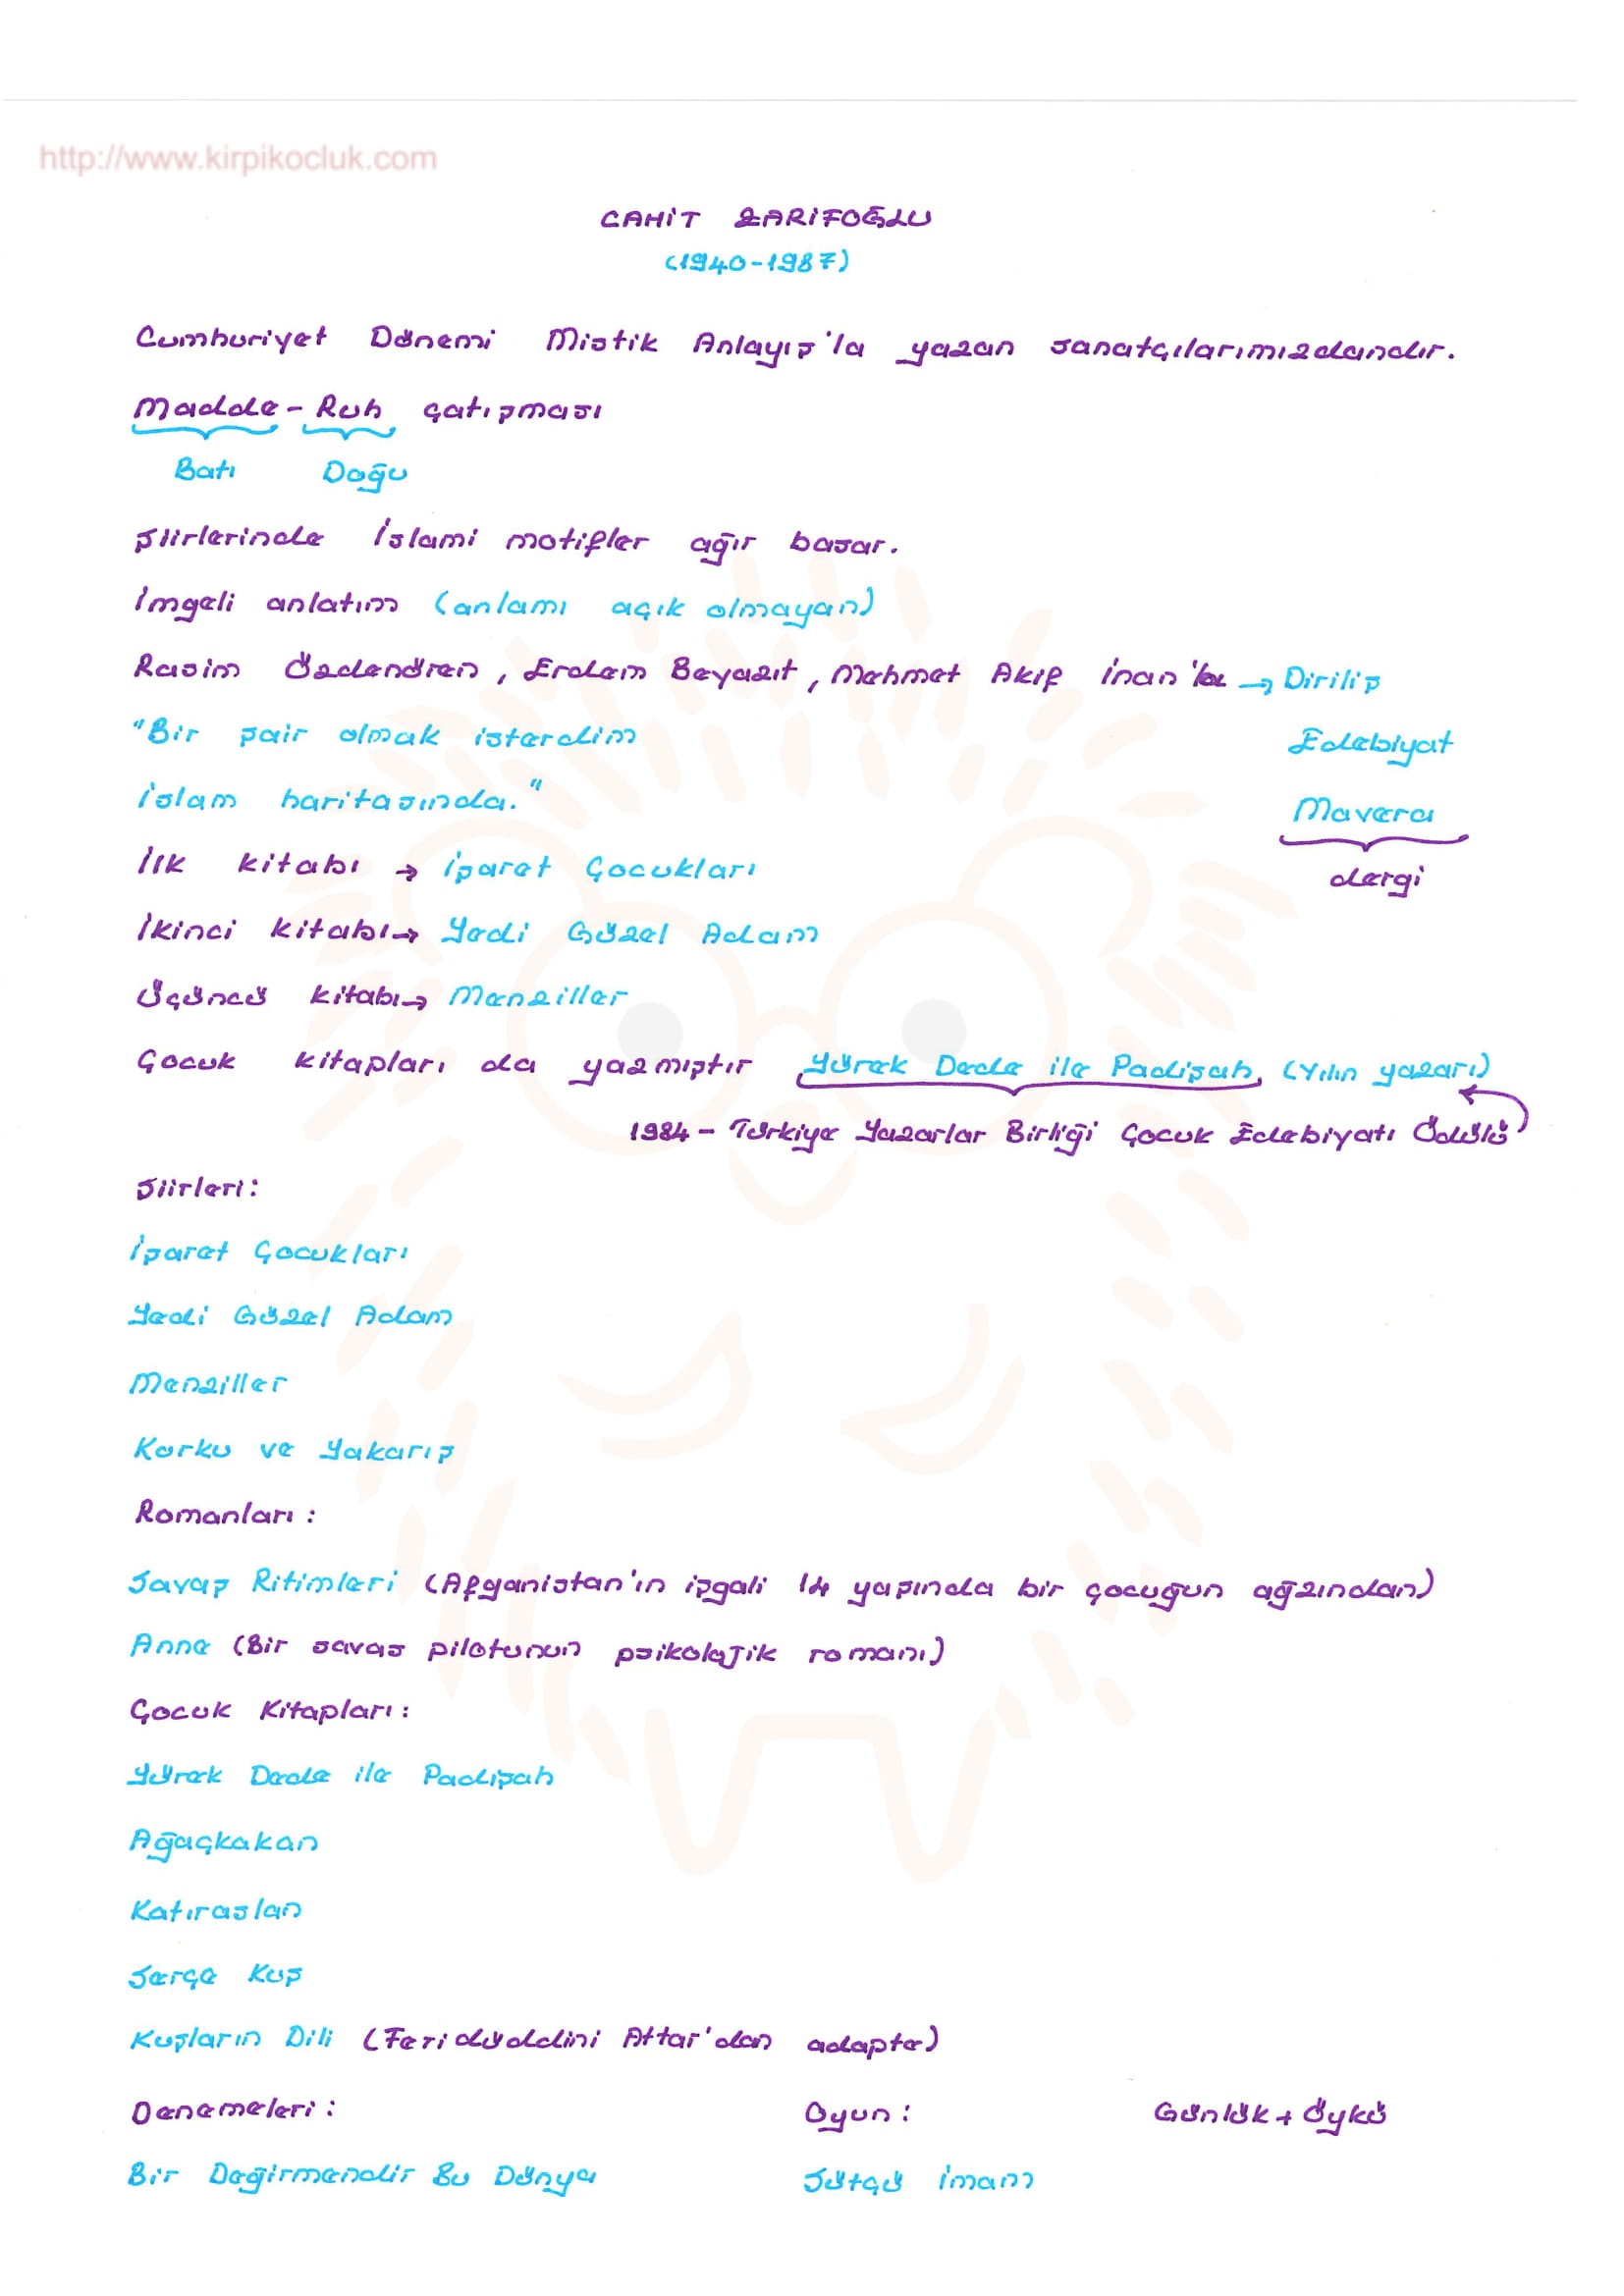 http://www.kirpikocluk.com
CAHİT ZARİFOĞLU
(1940-1987)
Cumhuriyet Dönemi Mistik Anlayış'la yazan sanatçılarımızdandır.
Madde - Ruh çatışması
Batı Doğu
Şiirlerinde İslami motifler ağır basar.
İmgeli anlatım (anlamı açık olmayan)
Rasim Özdenören, Erdem Beyazıt, Mehmet Akif İnan'la → Diriliş
"Bir şair olmak isterdim
Edebiyat
İslam haritasında."
Mavera
İlk kitabı → İşaret Çocukları
dergi
İkinci kitabı → Yedi Güzel Adam
Üçüncü kitabı → Menziller
Çocuk kitapları da yazmıştır Yürek Dede ile Padişah, (Yılın yazarı)
1984 - Türkiye Yazarlar Birliği Çocuk Edebiyatı Ödülü
Şiirleri:
İşaret Çocukları
Yedi Güzel Adam
Menziller
Korku ve Yakarış
Romanları:
Savaş Ritimleri (Afganistan'ın işgali 14 yaşında bir çocuğun ağzından)
Anne (Bir savas pilotunun psikolojik romanı)
Çocuk Kitapları:
Yürek Dede ile Padişah
Ağaçkakan
Katıraslan
Serçe Kuş
Kuşların Dili (Feridüddini Attar'dan adapte)
Denemeleri: Oyun: Günlük + Öykü
Bir Değirmendir Bu Dünya Sütçü İmam